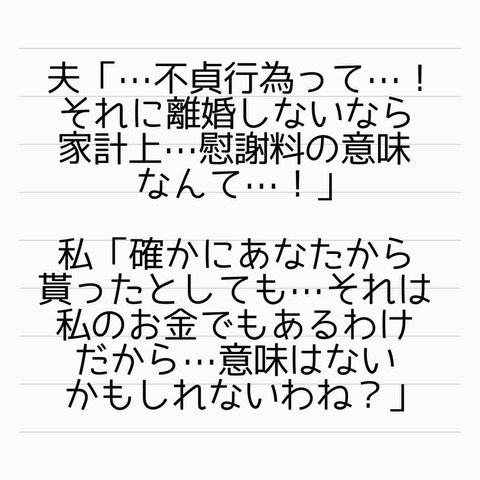 夫「…不貞行為って…！
それに離婚しないなら
家計上…慰謝料の意味
なんて…！」
私「確かにあなたから
貰ったとしても…それは
私のお金でもあるわけ
だから…意味はない
かもしれないわね？」